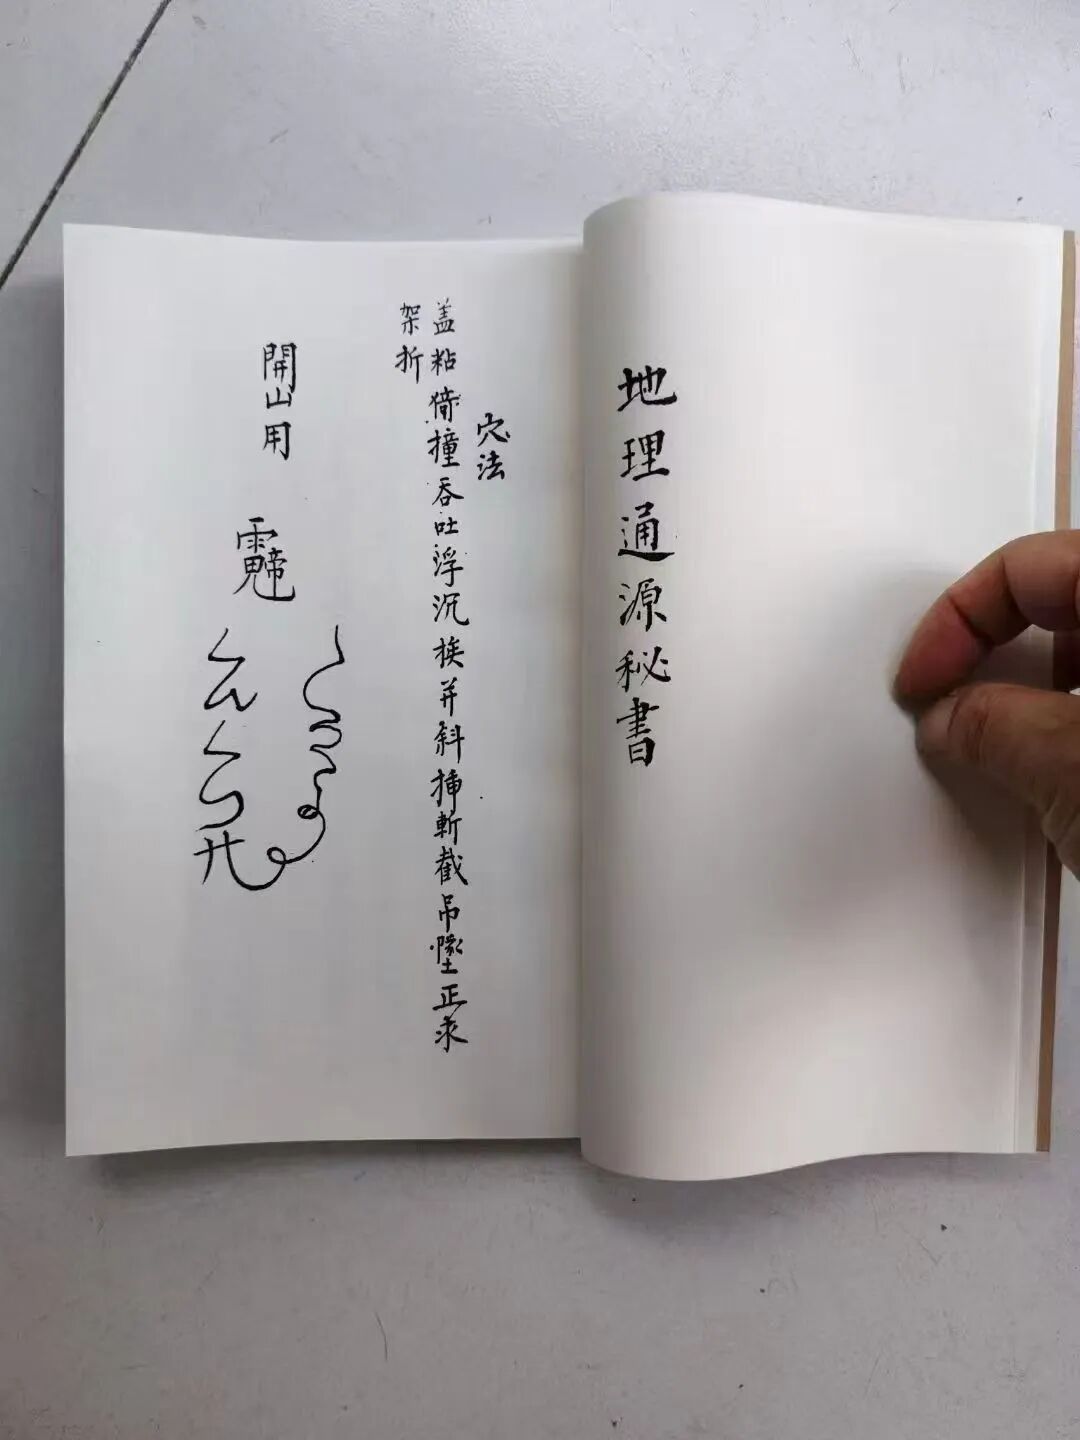 地理通源秘書
穴法
盖粘倚撞吞吐浮沉挨并斜揷斬截吊墜正求
架折
開山用